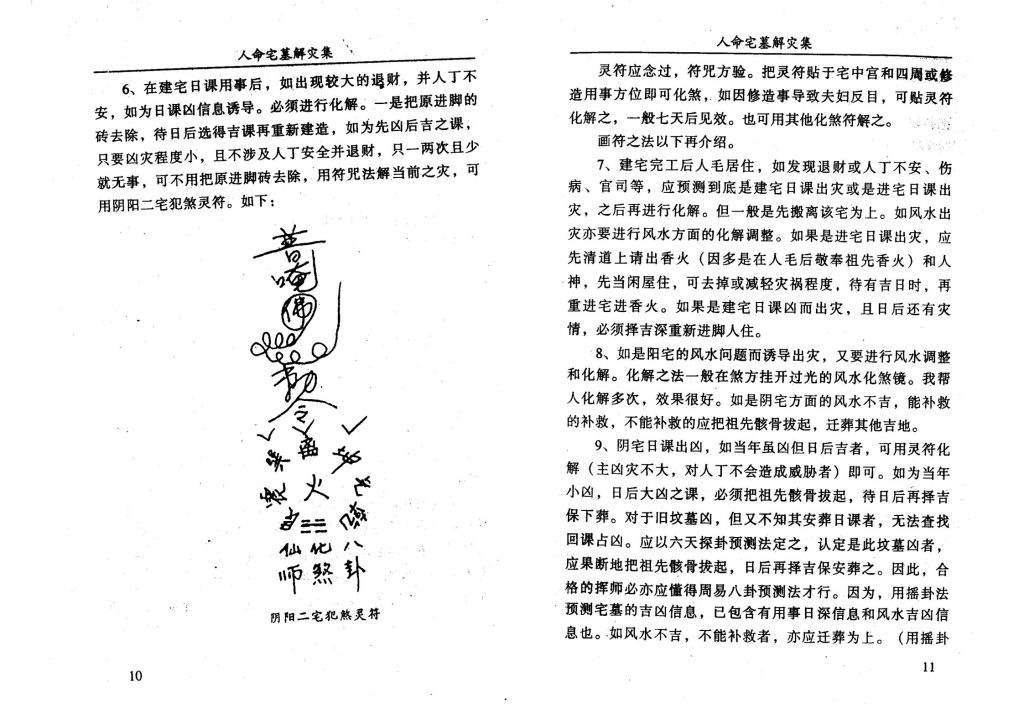 人命宅墓解灾集
6、在建宅日课用事后，如出现较大的退财，并人丁不
安，如为日课凶信息诱导。必须进行化解。一是把原进脚的
砖去除，待日后选得吉课再重新建造，如为先凶后吉之课，
只要凶灾程度小，且不涉及人丁安全并退财，只一两次且少
就无事，可不用把原进脚砖去除，用符咒法解当前之灾，可
用阴阳二宅犯煞灵符。如下：
普
唵
佛
勒
令
离
火
仙 化 八
师 煞 卦
阴阳二宅犯煞灵符
10
人命宅墓解灾集
灵符应念过，符咒方验。把灵符贴于宅中宫和四周或修
造用事方位即可化煞，如因修造事导致夫妇反目，可贴灵符
化解之，一般七天后见效。也可用其他化煞符解之。
画符之法以下再介绍。
7、建宅完工后人毛居住，如发现退财或人丁不安、伤
病、官司等，应预测到底是建宅日课出灾或是进宅日课出
灾，之后再进行化解。但一般是先搬离该宅为上。如风水出
灾亦要进行风水方面的化解调整。如果是进宅日课出灾，应
先清道上请出香火（因多是在人毛后敬奉祖先香火）和人
神，先当闲屋住，可去掉或减轻灾祸程度，待有吉日时，再
重进宅进香火。如果是建宅日课凶而出灾，且日后还有灾
情，必须择吉深重新进脚人住。
8、如是阳宅的风水问题而诱导出灾，又要进行风水调整
和化解。化解之法一般在煞方挂开过光的风水化煞镜。我帮
人化解多次，效果很好。如是阴宅方面的风水不吉，能补救
的补救，不能补救的应把祖先骸骨拔起，迁葬其他吉地。
9、阴宅日课出凶，如当年虽凶但日后吉者，可用灵符化
解（主凶灾不大，对人丁不会造成威胁者）即可。如为当年
小凶，日后大凶之课，必须把祖先骸骨拔起，待日后再择吉
保下葬。对于旧坟墓凶，但又不知其安葬日课者，无法查找
回课占凶。应以六天探卦预测法定之，认定是此坟墓凶者，
应果断地把祖先骸骨拔起，日后再择吉保安葬之。因此，合
格的挥师必亦应懂得周易八卦预测法才行。因为，用摇卦法
预测宅墓的吉凶信息，已包含有用事日深信息和风水吉凶信
息也。如风水不吉，不能补救者，亦应迁葬为上。（用摇卦
11